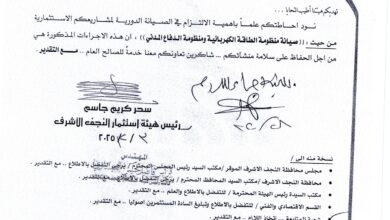 نهديكم أطيب التحايا ...
نود احاطتكم علماً بأهمية الالتزام في الصيانة الدورية لمشاريعكم الاستثمارية
من حيث ،، (صيانة منظومة الطاقة الكهربائية ومنظومة الدفاع المدني) ، ان هذه الاجراءات المذكورة هي
من اجل الحفاظ على سلامة منشآتكم .. شاكرين تعاونكم معنا خدمة للصالح العام .. مع التقدير.
سحر كريم جاسم
رئيس هيئة استثمار النجف الاشرف
المهندس
نسخة منه الى /
مجلس محافظة النجف الاشرف الموقر / مكتب السيد رئيس المجلس المحترم / يرجى التفضل بالاطلاع .. مع التقدير.
محافظة النجف الاشرف / مكتب السيد المحافظ المحترم / يرجى التفضل بالاطلاع .. مع التقدير.
مكتب السيدة رئيس الهيئة المحترمة / للتفضل بالاطلاع والعلم .. مع التقدير.
القسم الاقتصادي والفني / للتفضل بالاطلاع وتبليغ السادة المستثمرين اصوليا .. مع التقدير.
المتابعة .. اتخاذ اللازم .. مع التقدير.